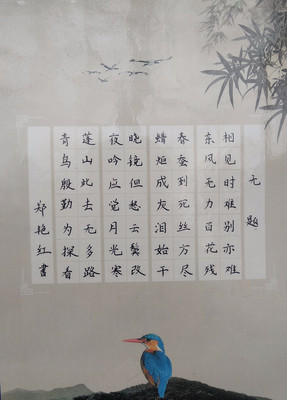 无题
相见时难别亦难
东风无力百花残
春蚕到死丝方尽
蜡炬成灰泪始干
晓镜但愁云鬓改
夜吟应觉月光寒
蓬山此去无多路
青鸟殷勤为探看
郑艳红书